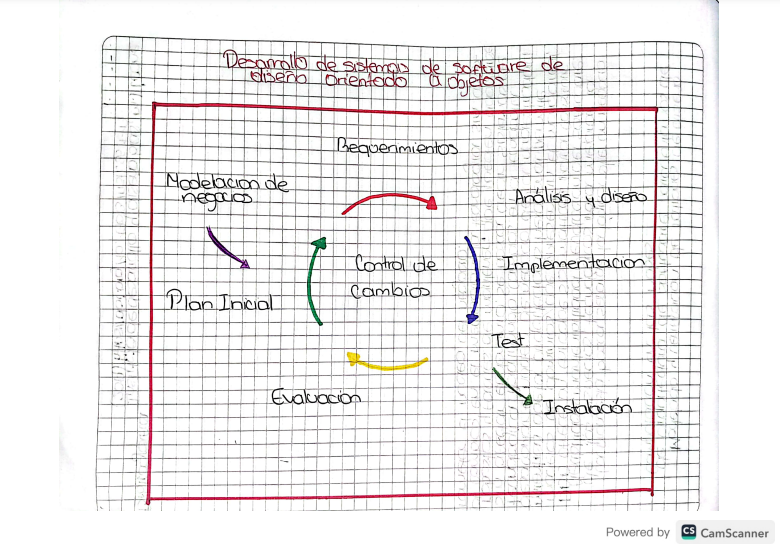 Desarrollo de sistemas de software de
diseño orientado a objetos
Requerimientos
Modelacion de
negocios
Análisis y diseño
Control de
cambios
Implementacion
Plan Inicial
Test
Evaluacion
Instalación
Powered by CS CamScanner